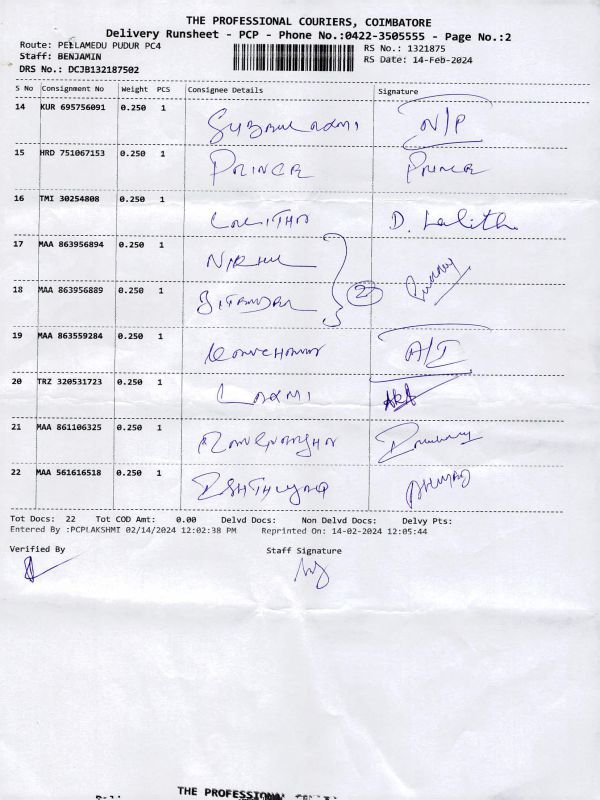 THE PROFESSIONAL COURIERS, COIMBATORE
Delivery Runsheet - PCP - Phone No.:0422-3505555 - Page No.:2
Route: PEELAMEDU PUDUR PC4
RS No.: 1321875
Staff: BENJAMIN
RS Date: 14-Feb-2024
DRS No.: DCJB132187502
S No Consignment No Weight PCS Consignee Details Signature
14 KUR 695756091 0.250 1 N/P
15 HRD 751067153 0.250 1 PRINCE Prince
16 TMI 30254808 0.250 1 LALITHA D. Lalitha
17 MAA 863956894 0.250 1 NIRMAL
2
18 MAA 863956889 0.250 1
19 MAA 863559284 0.250 1 A/I
20 TRZ 320531723 0.250 1 LAXMI
21 MAA 861106325 0.250 1
22 MAA 561616518 0.250 1
Tot Docs: 22 Tot COD Amt: 0.00 Delvd Docs: Non Delvd Docs: Delvy Pts:
Entered By :PCPLAKSHMI 02/14/2024 12:02:38 PM Reprinted On: 14-02-2024 12:05:44
Verified By Staff Signature
THE PROFESSIONAL